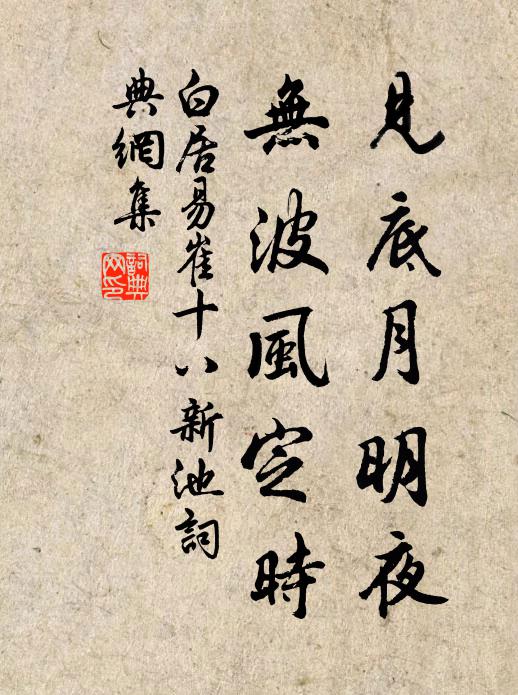 見底月明夜
無波風定時
白居易崔十八新池詞
典網集
詞典
网印